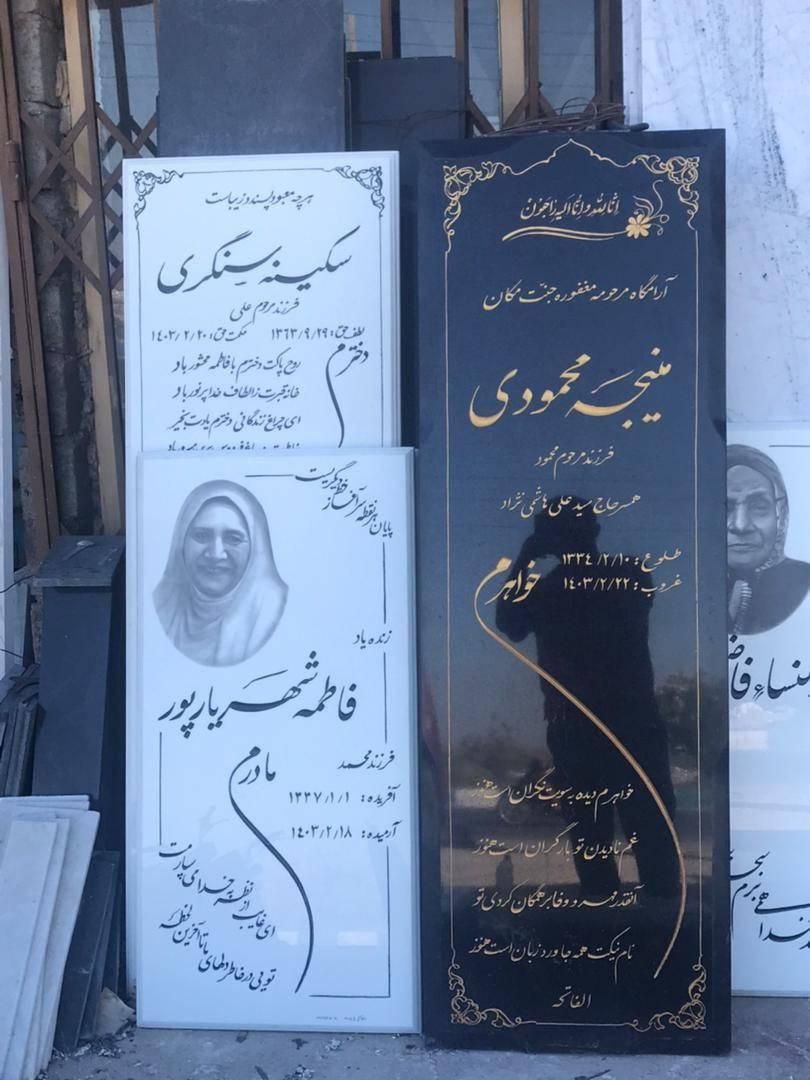 هرچه معبود پسندد زیباست
سکینه سنگری
فرزند مرحوم علی
لطف حق: ۱۳۶۳/۹/۲۹ حکمت حق: ۱۴۰۳/۲/۲۰
دخترم
روح پاکت دخترم با فاطمه محشور باد
خانه قبرت ز الطاف خدا پرنور باد
ای چراغ زندگانی دخترم یادت بخیر
پایان هر نقطه سرآغاز خط دیگریست
زنده یاد
فاطمه شهریارپور
فرزند محمد
مادرم
آفریده: ۱۳۳۷/۱/۱
آرمیده: ۱۴۰۳/۲/۱۸
می سپارمت
به خدای
نقطه
از
ای غایب
تا آخرین لحظه
تویی در خاطر دلهای ما
انا لله و انا الیه راجعون
آرامگاه مرحومه مغفوره جنت مکان
منیجه محمودی
فرزند مرحوم محمود
همسر حاج سید علی هاشمی نژاد
طلوع: ۱۳۳۴/۲/۱۰
غروب: ۱۴۰۳/۲/۲۲
خواهرم
خواهرم دیده بسویت نگران است هنوز
غم نادیدن تو بار گران است هنوز
آنقدر مهر و وفا بر همگان کردی تو
نام نیکت همه جا ورد زبان است هنوز
الفاتحه